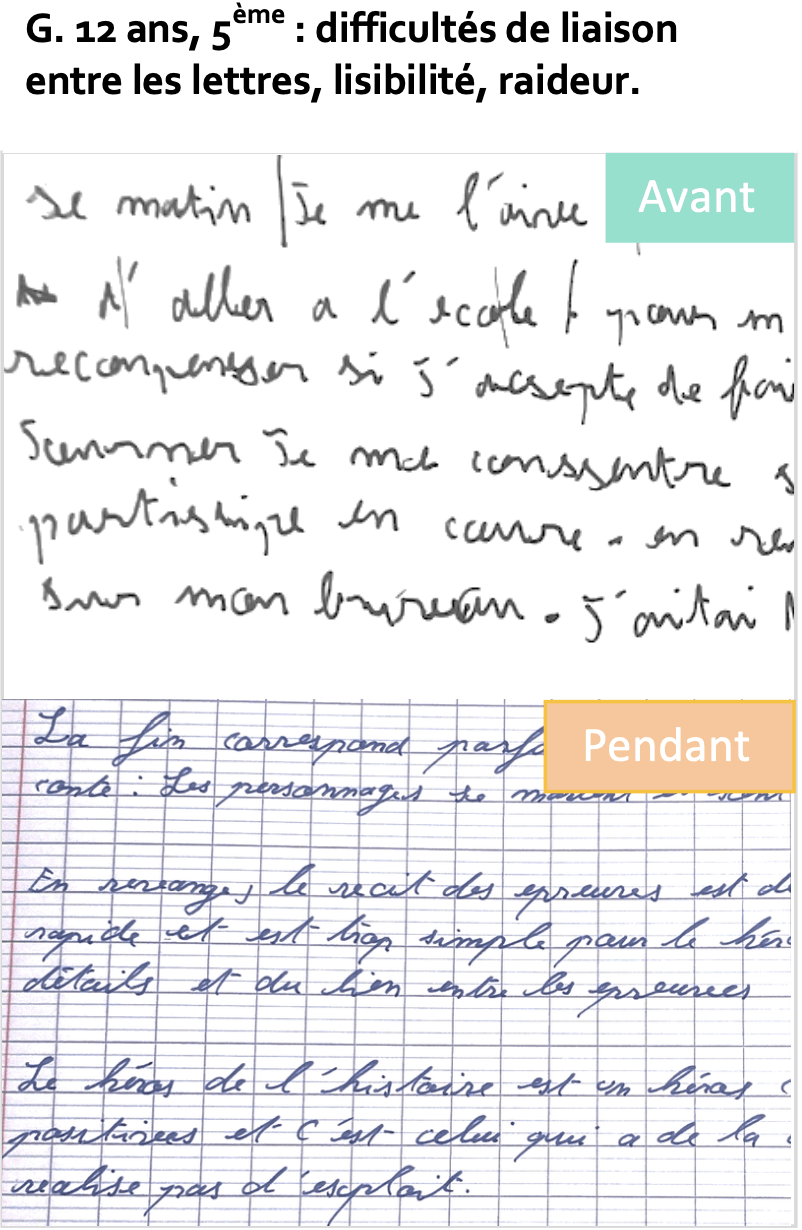 G. 12 ans, 5ème : difficultés de liaison
entre les lettres, lisibilité, raideur.
Avant
se matin | Je me l'aive
d' aller a l'ecole | pour m
recompenser si j' acsepte de fai
Sommer Je me conssentre s
en courre . en re
sur mon bureau . j'aitai
Pendant
La fin correspond parfa
conte : Les personnages se marient et sont
En revange, le recit des epreuves est d
rapide et est trop simple pour le hér
détails et du lien entre les epreuves
Le héros de l'histoire est un héros
positives et c'est celui qui a de la
realise pas d'exploit.